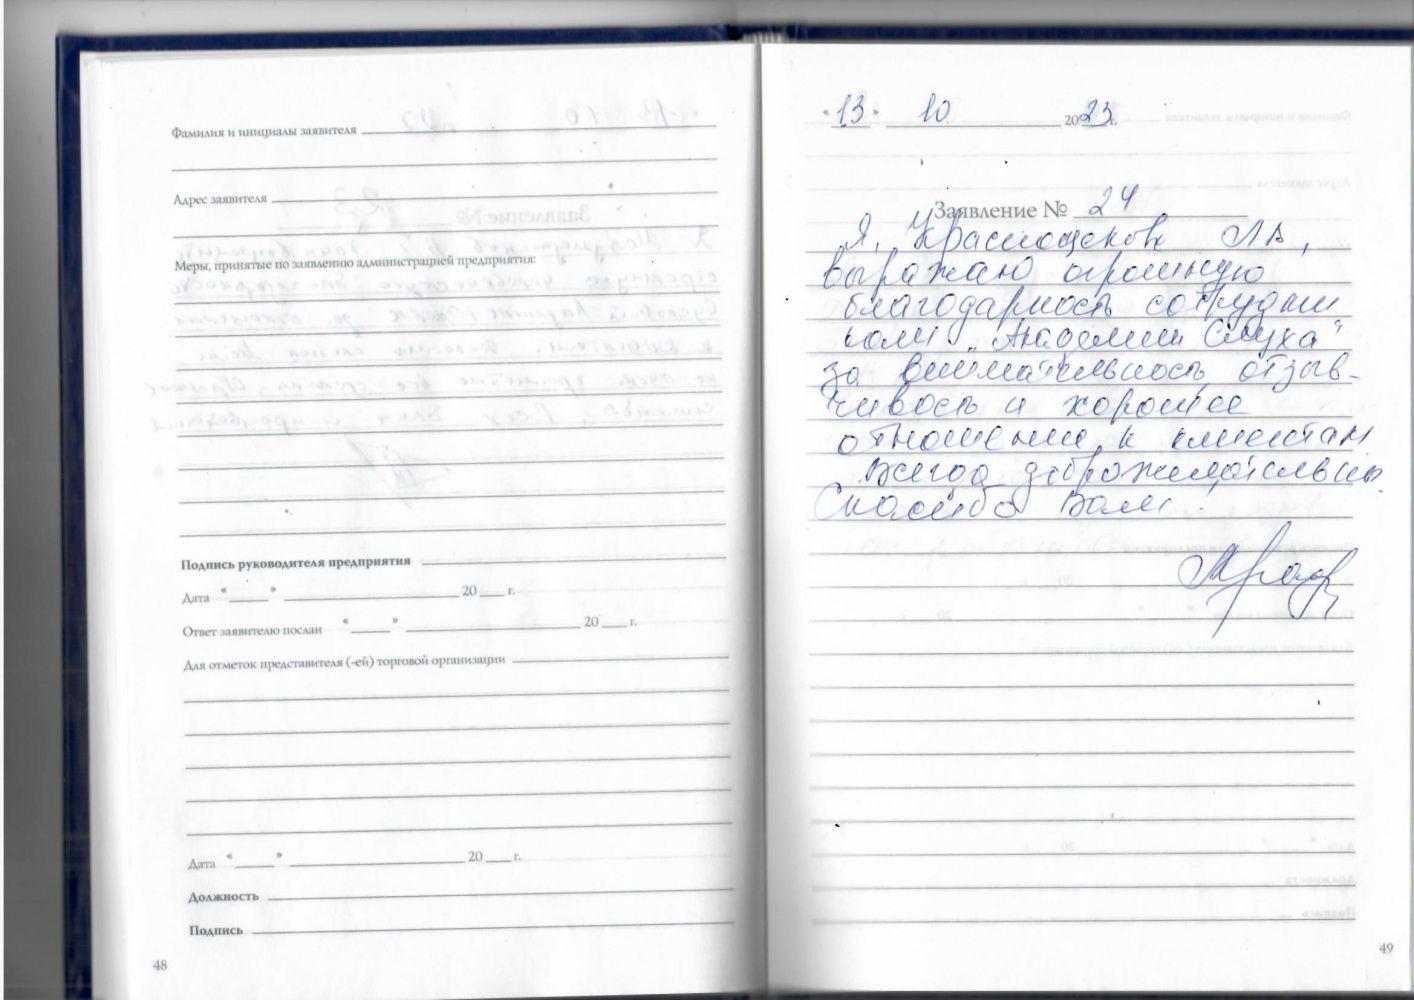 Фамилия и инициалы заявителя
Адрес заявителя
Меры, принятые по заявлению администрацией предприятия:
Подпись руководителя предприятия
Дата « » 20 г.
Ответ заявителю послан « » 20 г.
Для отметок представителя (-ей) торговой организации
Дата « » 20 г.
Должность
Подпись
48
«13» 10 2023 г.
Заявление № 24
Я, Краснощеков ЛА,
выражаю огромную
благодарность сотрудни
кам „Академии Слуха“
за внимательность, отзыв-
чивость и хорошее
отношение к клиентам
Всегда доброжелательны
Спасибо Вам.
49